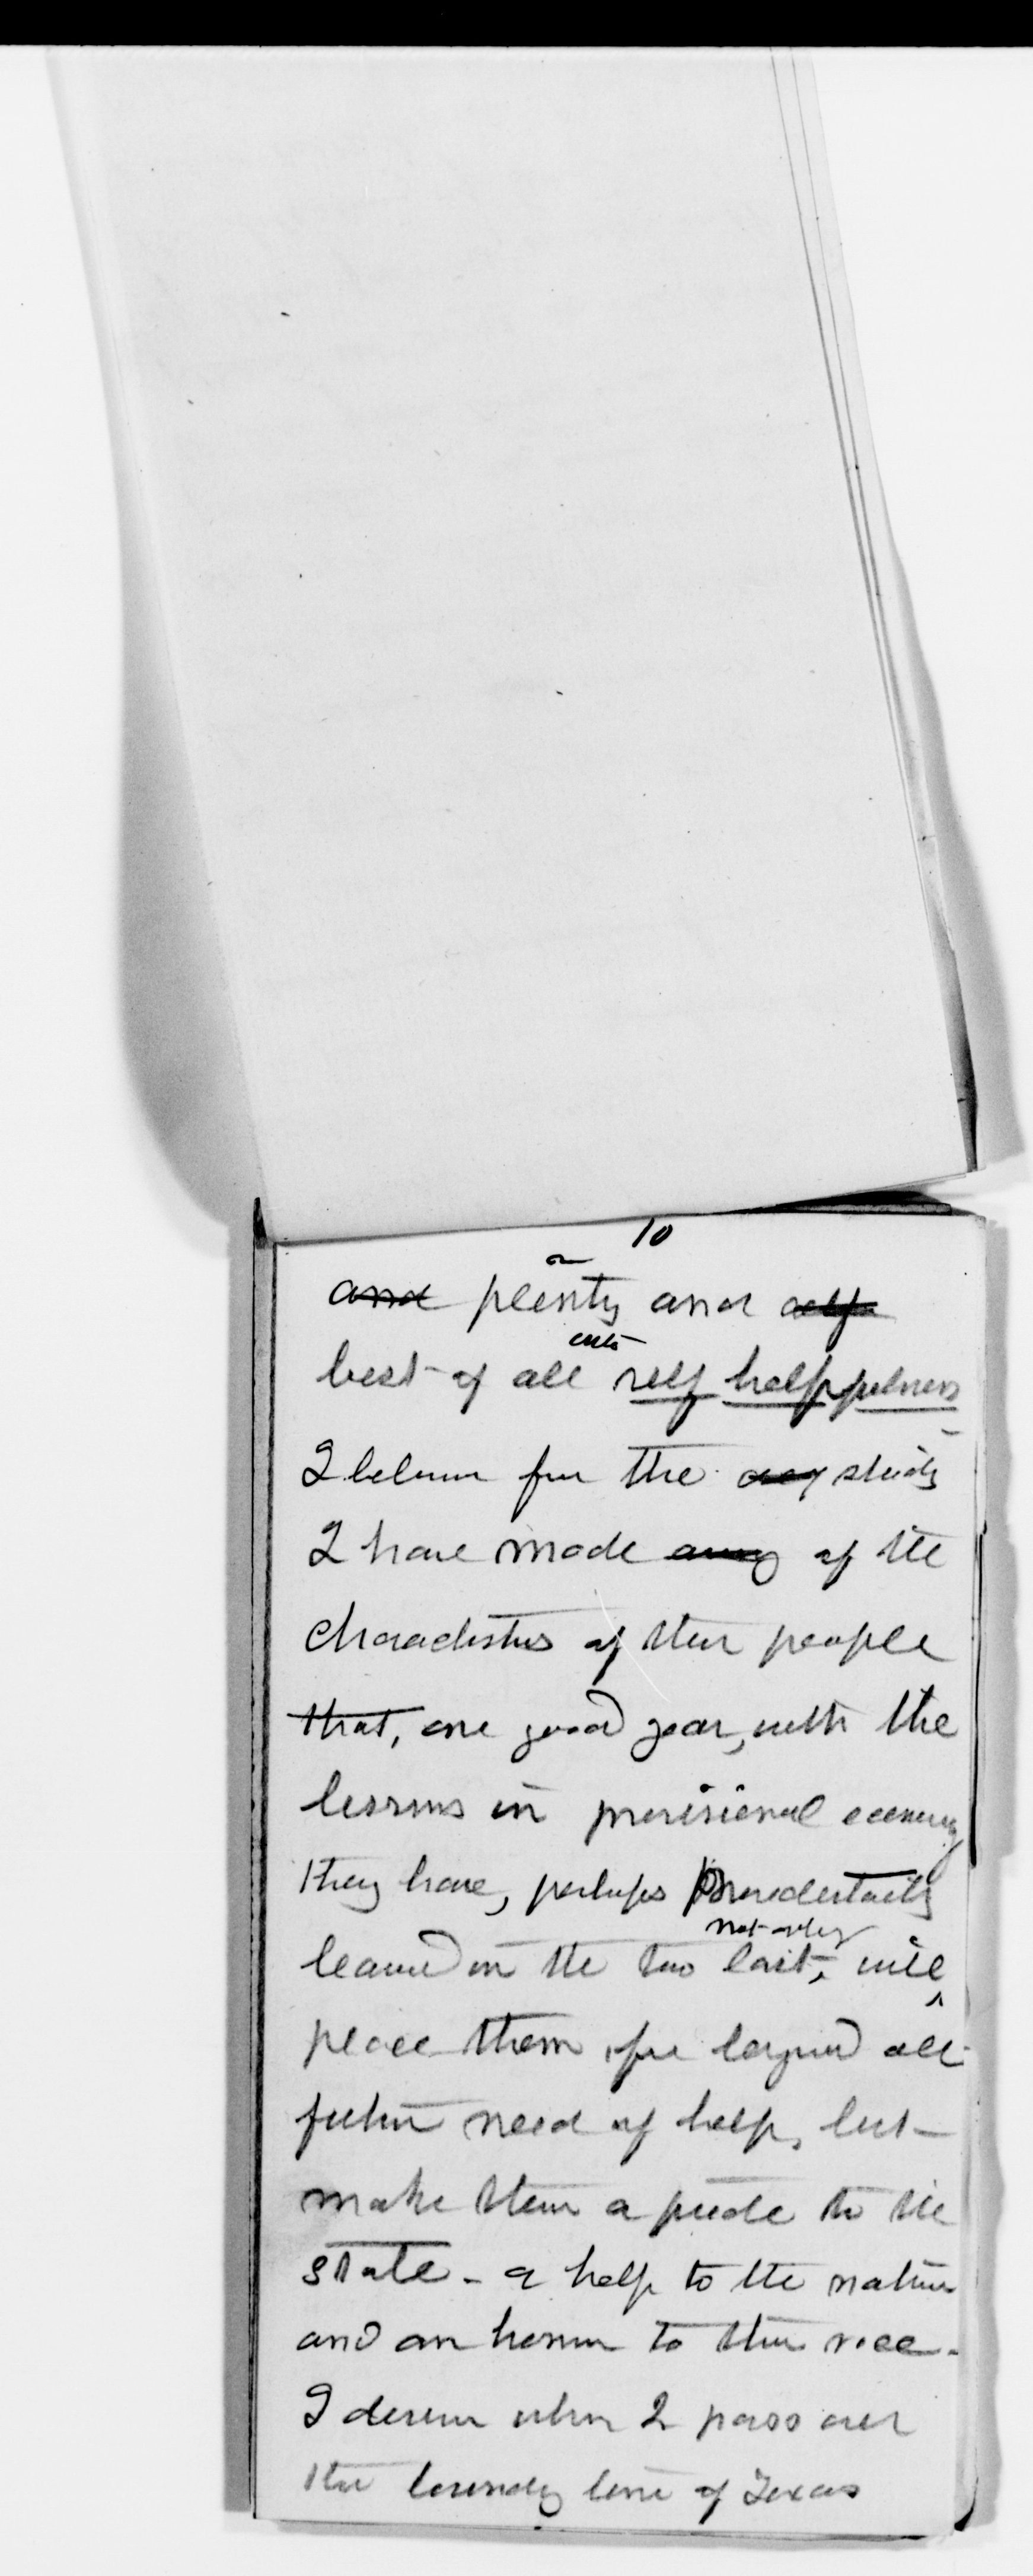 10
and plenty and self
best of all into self helpfulness
I believe from the study
I have made any of the
characteristics of these people
that, one good year, with the
lessons in provisional economy
they have, perhaps
not only
learned in the two last, will
place them far beyond all
future need of help, but
make them a pride to the
state - a help to the nation
and an honor to their race.
I desire when I pass over
the boundry line of Texas